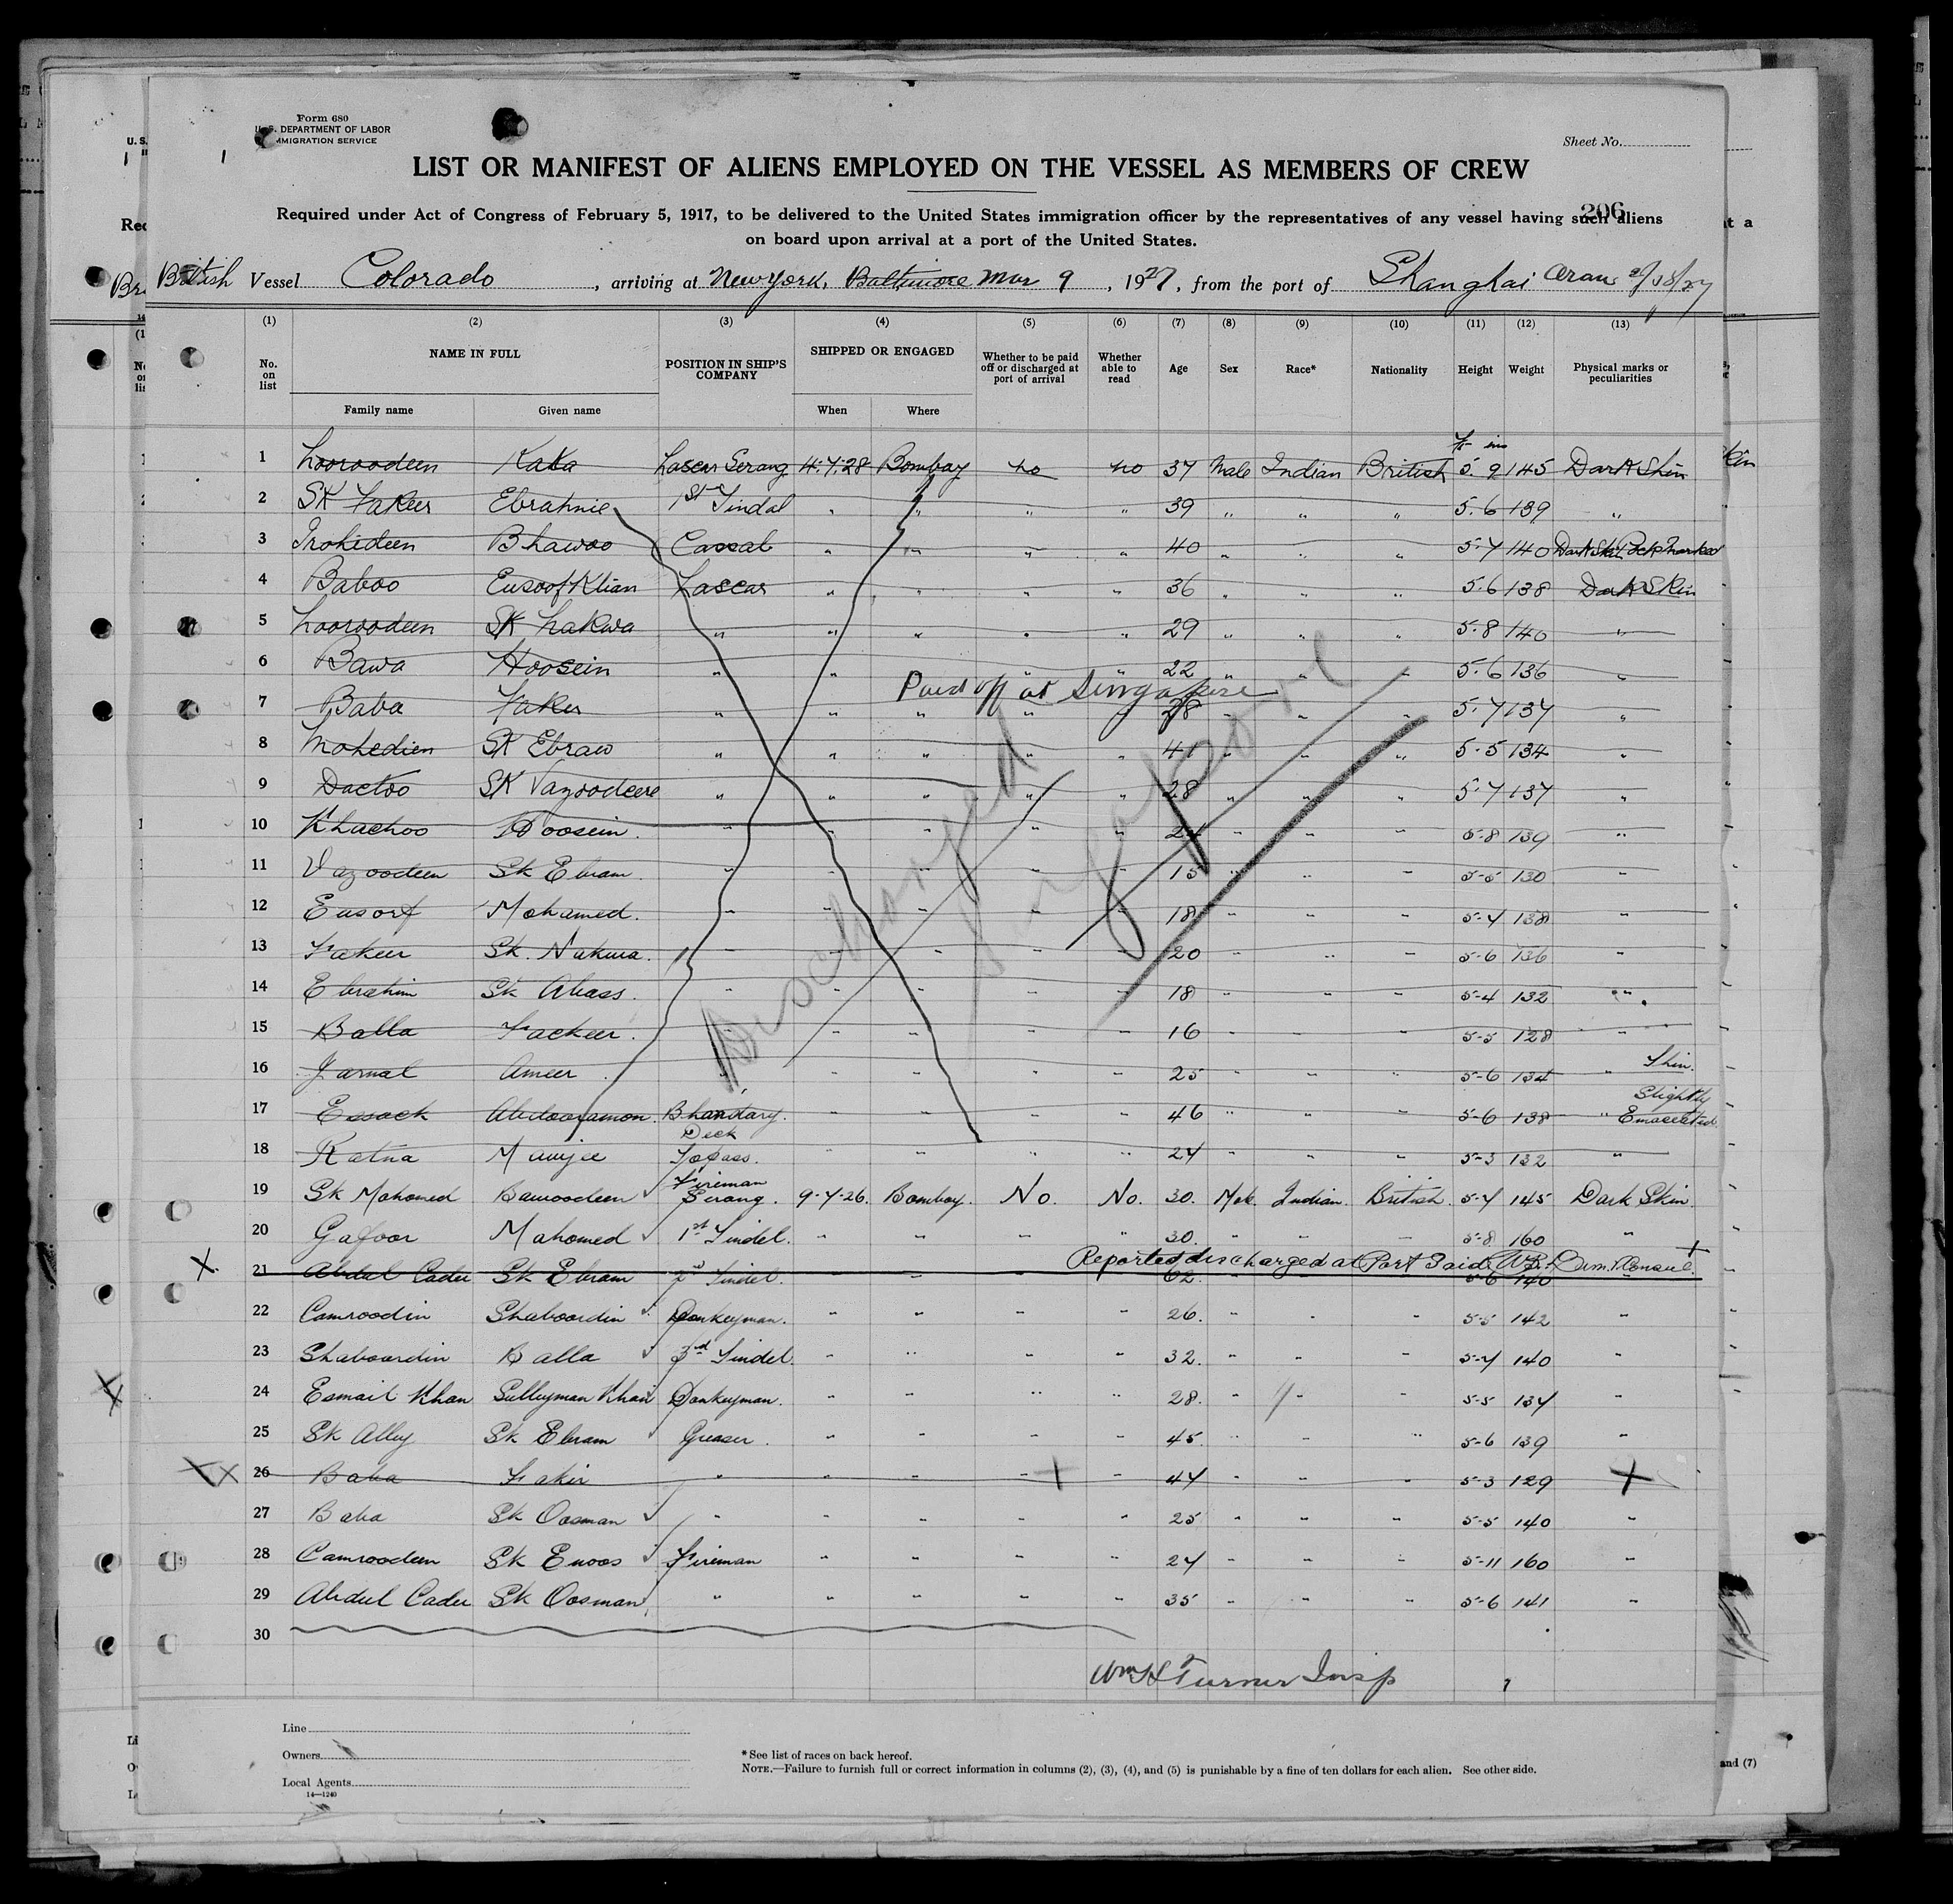 Form 680
U. S. DEPARTMENT OF LABOR
IMMIGRATION SERVICE
Sheet No.
LIST OR MANIFEST OF ALIENS EMPLOYED ON THE VESSEL AS MEMBERS OF CREW
206
Required under Act of Congress of February 5, 1917, to be delivered to the United States immigration officer by the representatives of any vessel having such aliens
on board upon arrival at a port of the United States.
British Vessel Colorado, arriving at New York, Baltimore Mar 9, 1927, from the port of Shanghai
(1) (2) (3) (4) (5) (6) (7) (8) (9) (10) (11) (12) (13)
No. on list NAME IN FULL POSITION IN SHIP'S COMPANY SHIPPED OR ENGAGED Whether to be paid off or discharged at port of arrival Whether able to read Age Sex Race* Nationality Height Weight Physical marks or peculiarities
Family name Given name When Where
ft ins
1 Looroodeen Kaka Lascar Serang 4.7.28 Bombay no no 37 Male Indian British 5.9 145 Dark Skin
2 SK Fakeer Ebrahnie 1st Tindal " " " " 39 " " " 5.6 139 "
3 Bhawoo Cassab " " " " 40 " " " 5.7 140 Dark Skin Pock Marked
4 Baboo Eusoof Khan Lascar " " " " 36 " " " 5.6 138 Dark Skin
5 Looroodeen SK " " " " " 29 " " " 5.8 140 "
6 Bawa Hoosein " " " " " 22 " " " 5.6 136 "
Paid off at Singapore
7 Baba Faker " " " " " 28 " " " 5.7 137 "
8 Mohedien SK Ebraw " " " " " 41 " " " 5.5 134 "
9 Dactoo SK " " " " " 28 " " " 5.7 137 "
10 Khachoo Hoosein " " " " " 24 " " " 5-8 139 "
11 Vazoodeen Sk Ebram " " " " " 15 " " " 5-5 130 "
12 Eusorf Mohamed " " " " " 18 " " " 5-4 138 "
13 Fakeer Sk. Nakwa " " " " " 20 " " " 5-6 136 "
14 Ebrahim Sk Abass " " " " " 18 " " " 5-4 132 "
15 Balla Fackeer " " " " " 16 " " " 5-5 128 "
16 Jamal Ameer " " " " " 25 " " " 5-6 134 " Thin.
17 Essack Abdooramon Bhandary " " " " 46 " " " 5-6 138 " Slightly Emaciated.
18 Ratna Manjee Deck Topass " " " " 24 " " " 5-3 132 "
Discharged Singapore
19 Sk Mohomed Bawoodeen Fireman Serang 9-7-26 Bombay No. No. 30. Male Indian British 5-7 145 Dark Skin
20 Gafoor Mahomed 1st Tindel " " " " 30. " " " 5-8 160 "
Reported discharged at Port Said
21 Abdul Cader Sk Ebram 2nd Tindel " 62 5-6 140
22 Camroodin Shaboordin Donkeyman. " " " " 26. " " " 5-5 142 "
23 Shaboordin Balla 3rd Tindel " " " " 32. " " " 5-7 140 "
24 Esmail Khan Sulleyman Khan Donkeyman. " " " " 28. " " " 5-5 134 "
25 Sk Alley Sk Ebram Greaser " " " " 45. " " " 5-6 139 "
26 Baba Fakir " " " " " 47 " " " 5-3 129
27 Baba Sk Oosman " " " " " 25 " " " 5-5 140 "
28 Camroodeen Sk Enoos Fireman " " " " 24 " " " 5-11 160 "
29 Abdul Cader Sk Oosman " " " " " 35 " " " 5-6 141 "
30
Wm H Turner Insp
Line
Owners
Local Agents
14—1240
*See list of races on back hereof.
NOTE.—Failure to furnish full or correct information in columns (2), (3), (4), and (5) is punishable by a fine of ten dollars for each alien. See other side.
and (7)